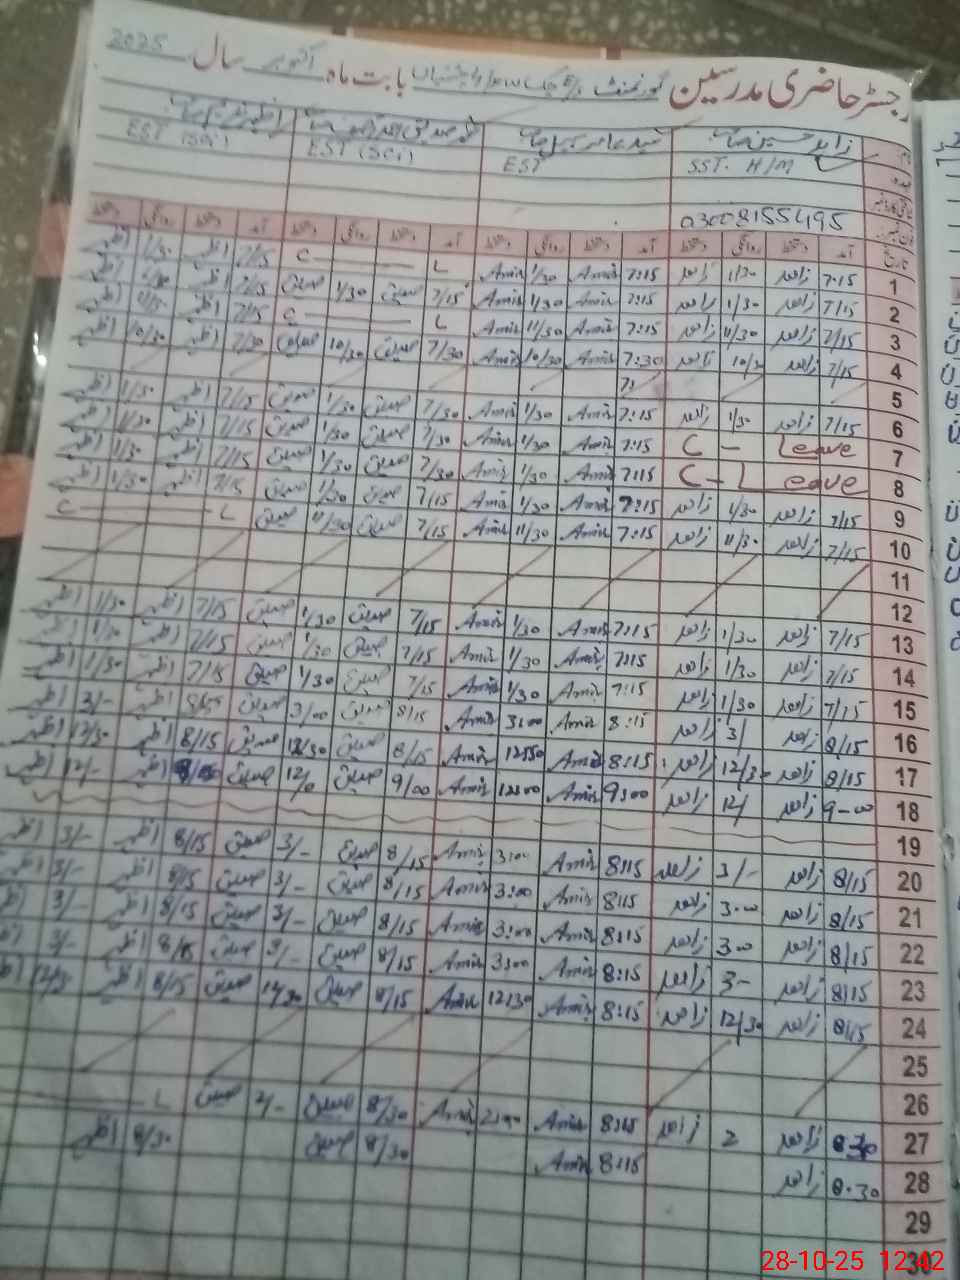 رجسٹر حاضری مدرسین گورنمنٹ بابت ماہ اکتوبر سال 2025
نام زاہد حسین صاحب سید عامر سہیل صاحب محمد صدیق
عہدہ SST. H/M EST EST (Sci) EST (Sci)
03008155495
تاریخ آمد دستخط روانگی دستخط آمد دستخط روانگی دستخط آمد دستخط روانگی دستخط آمد دستخط روانگی دستخط
1 7:15 زاہد 1/30 زاہد 7:15 Amir 1/30 Amir L C 7/15 اظہر 1/30 اظہر
2 7/15 زاہد 1/30 زاہد 7:15 Amir 1/30 Amir 7/15 صدیق 1/30 صدیق 7/15 اظہر 1/30 اظہر
3 7/15 زاہد 11/30 زاہد 7:15 Amir 11/30 Amir L C 7/15 اظہر اظہر
4 7/15 زاہد 10/30 زاہد 7:30 Amir 10/30 Amir 7/30 صدیق 10/30 صدیق 7/30 اظہر 10/30 اظہر
5
6 7/15 زاہد 1/30 زاہد 7:15 Amir 1/30 Amir 7/30 صدیق 1/30 صدیق 7/15 اظہر 1/30 اظہر
7 C - Leave 7:15 Amir 1/30 Amir 7/30 صدیق 1/30 صدیق 7/15 اظہر 1/30 اظہر
8 C - Leave 7:15 Amir 1/30 Amir 7/30 صدیق 1/30 صدیق 7/15 اظہر 1/30 اظہر
9 7/15 زاہد 1/30 زاہد 7:15 Amir 1/30 Amir 7/15 صدیق 1/30 صدیق 7/15 اظہر 1/30 اظہر
10 7/15 زاہد 11/30 زاہد 7:15 Amir 11/30 Amir 7/15 صدیق 11/30 صدیق L C
11
12
13 7/15 زاہد 1/30 زاہد 7:15 Amir 1/30 Amir 7/15 صدیق 1/30 صدیق 7/15 اظہر 1/30 اظہر
14 7/15 زاہد 1/30 زاہد 7:15 Amir 1/30 Amir 7/15 صدیق 1/30 صدیق 7/15 اظہر 1/30 اظہر
15 7/15 زاہد 1/30 زاہد 7:15 Amir 1/30 Amir 7/15 صدیق 1/30 صدیق 7/15 اظہر 1/30 اظہر
16 8/15 زاہد 3/ زاہد 8:15 Amir 3:00 Amir 8/15 صدیق 3/00 صدیق 8/15 اظہر 3/- اظہر
17 8/15 زاہد 12/30 زاہد 8:15 Amir 12:30 Amir 8/15 صدیق 12/30 صدیق 8/15 اظہر 12/30 اظہر
18 9-00 زاہد 12/ زاہد 9:00 Amir 12:00 Amir 9/00 صدیق 12/0 صدیق اظہر 12/- اظہر
19
20 8/15 زاہد 3/- زاہد 8:15 Amir 3:00 Amir 8/15 صدیق 3/- صدیق 8/15 اظہر 3/- اظہر
21 8/15 زاہد 3:00 زاہد 8:15 Amir 3:00 Amir 8/15 صدیق 3/- صدیق 8/15 اظہر 3/- اظہر
22 8/15 زاہد 3:00 زاہد 8:15 Amir 3:00 Amir 8/15 صدیق 3/- صدیق 8/15 اظہر 3/- اظہر
23 8/15 زاہد 3- زاہد 8:15 Amir 3:00 Amir 8/15 صدیق 3/- صدیق 8/15 اظہر 3/- اظہر
24 8/15 زاہد 12/30 زاہد 8:15 Amir 12:30 Amir 8/15 صدیق 12/30 صدیق 8/15 اظہر اظہر
25
26
27 8:30 زاہد 2 زاہد 8:15 Amir 2:00 Amir 8/30 صدیق 2/- صدیق L
28 8.30 زاہد 8:15 Amir 8/30 صدیق 8/30 اظہر
29
30
28-10-25 12:42